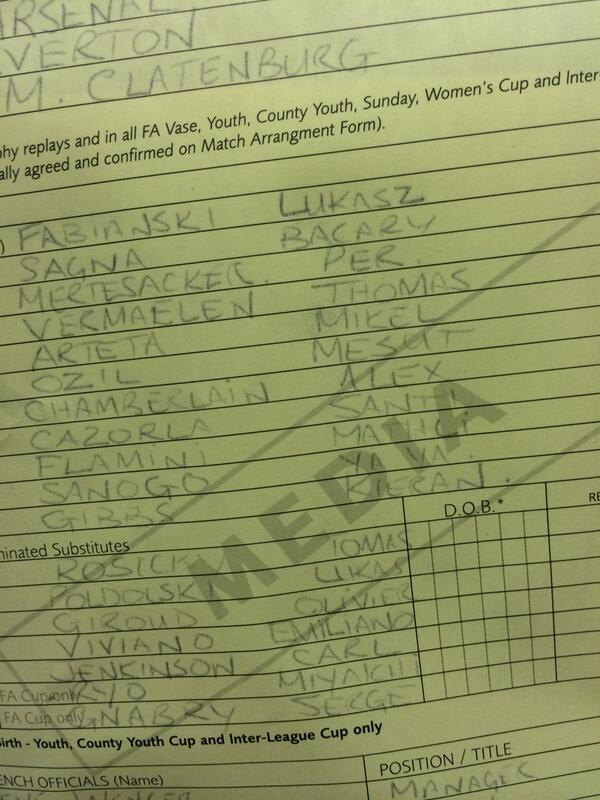 ARSENAL
VERTON
M. CLATENBURG
phy replays and in all FA Vase, Youth, County Youth, Sunday, Women's Cup and Inter-
ally agreed and confirmed on Match Arrangment Form).
) FABIANSKI LUKASZ
SAGNA BACARY
MERTESACKER. PER.
VERMAELEN THOMAS
ARTETA MIKEL
OZIL MESUT
CHAMBERLAIN ALEX
CAZORLA SANTI
FLAMINI
SANOGO YA YA
GIBBS KIERAN.
MEDIA
D.O.B.* RE
minated Substitutes
ROSICKY TOMAS
POLDOLSKI LUKAS
GIROUD OLIVIER
VIVIANO EMILIANO
JENKINSON CARL
FA Cup only RYO MIYAICHI
FA Cup only GNABRY SERGE
Birth - Youth, County Youth Cup and Inter-League Cup only
ENCH OFFICIALS (Name) POSITION / TITLE
WENGER MANAGER